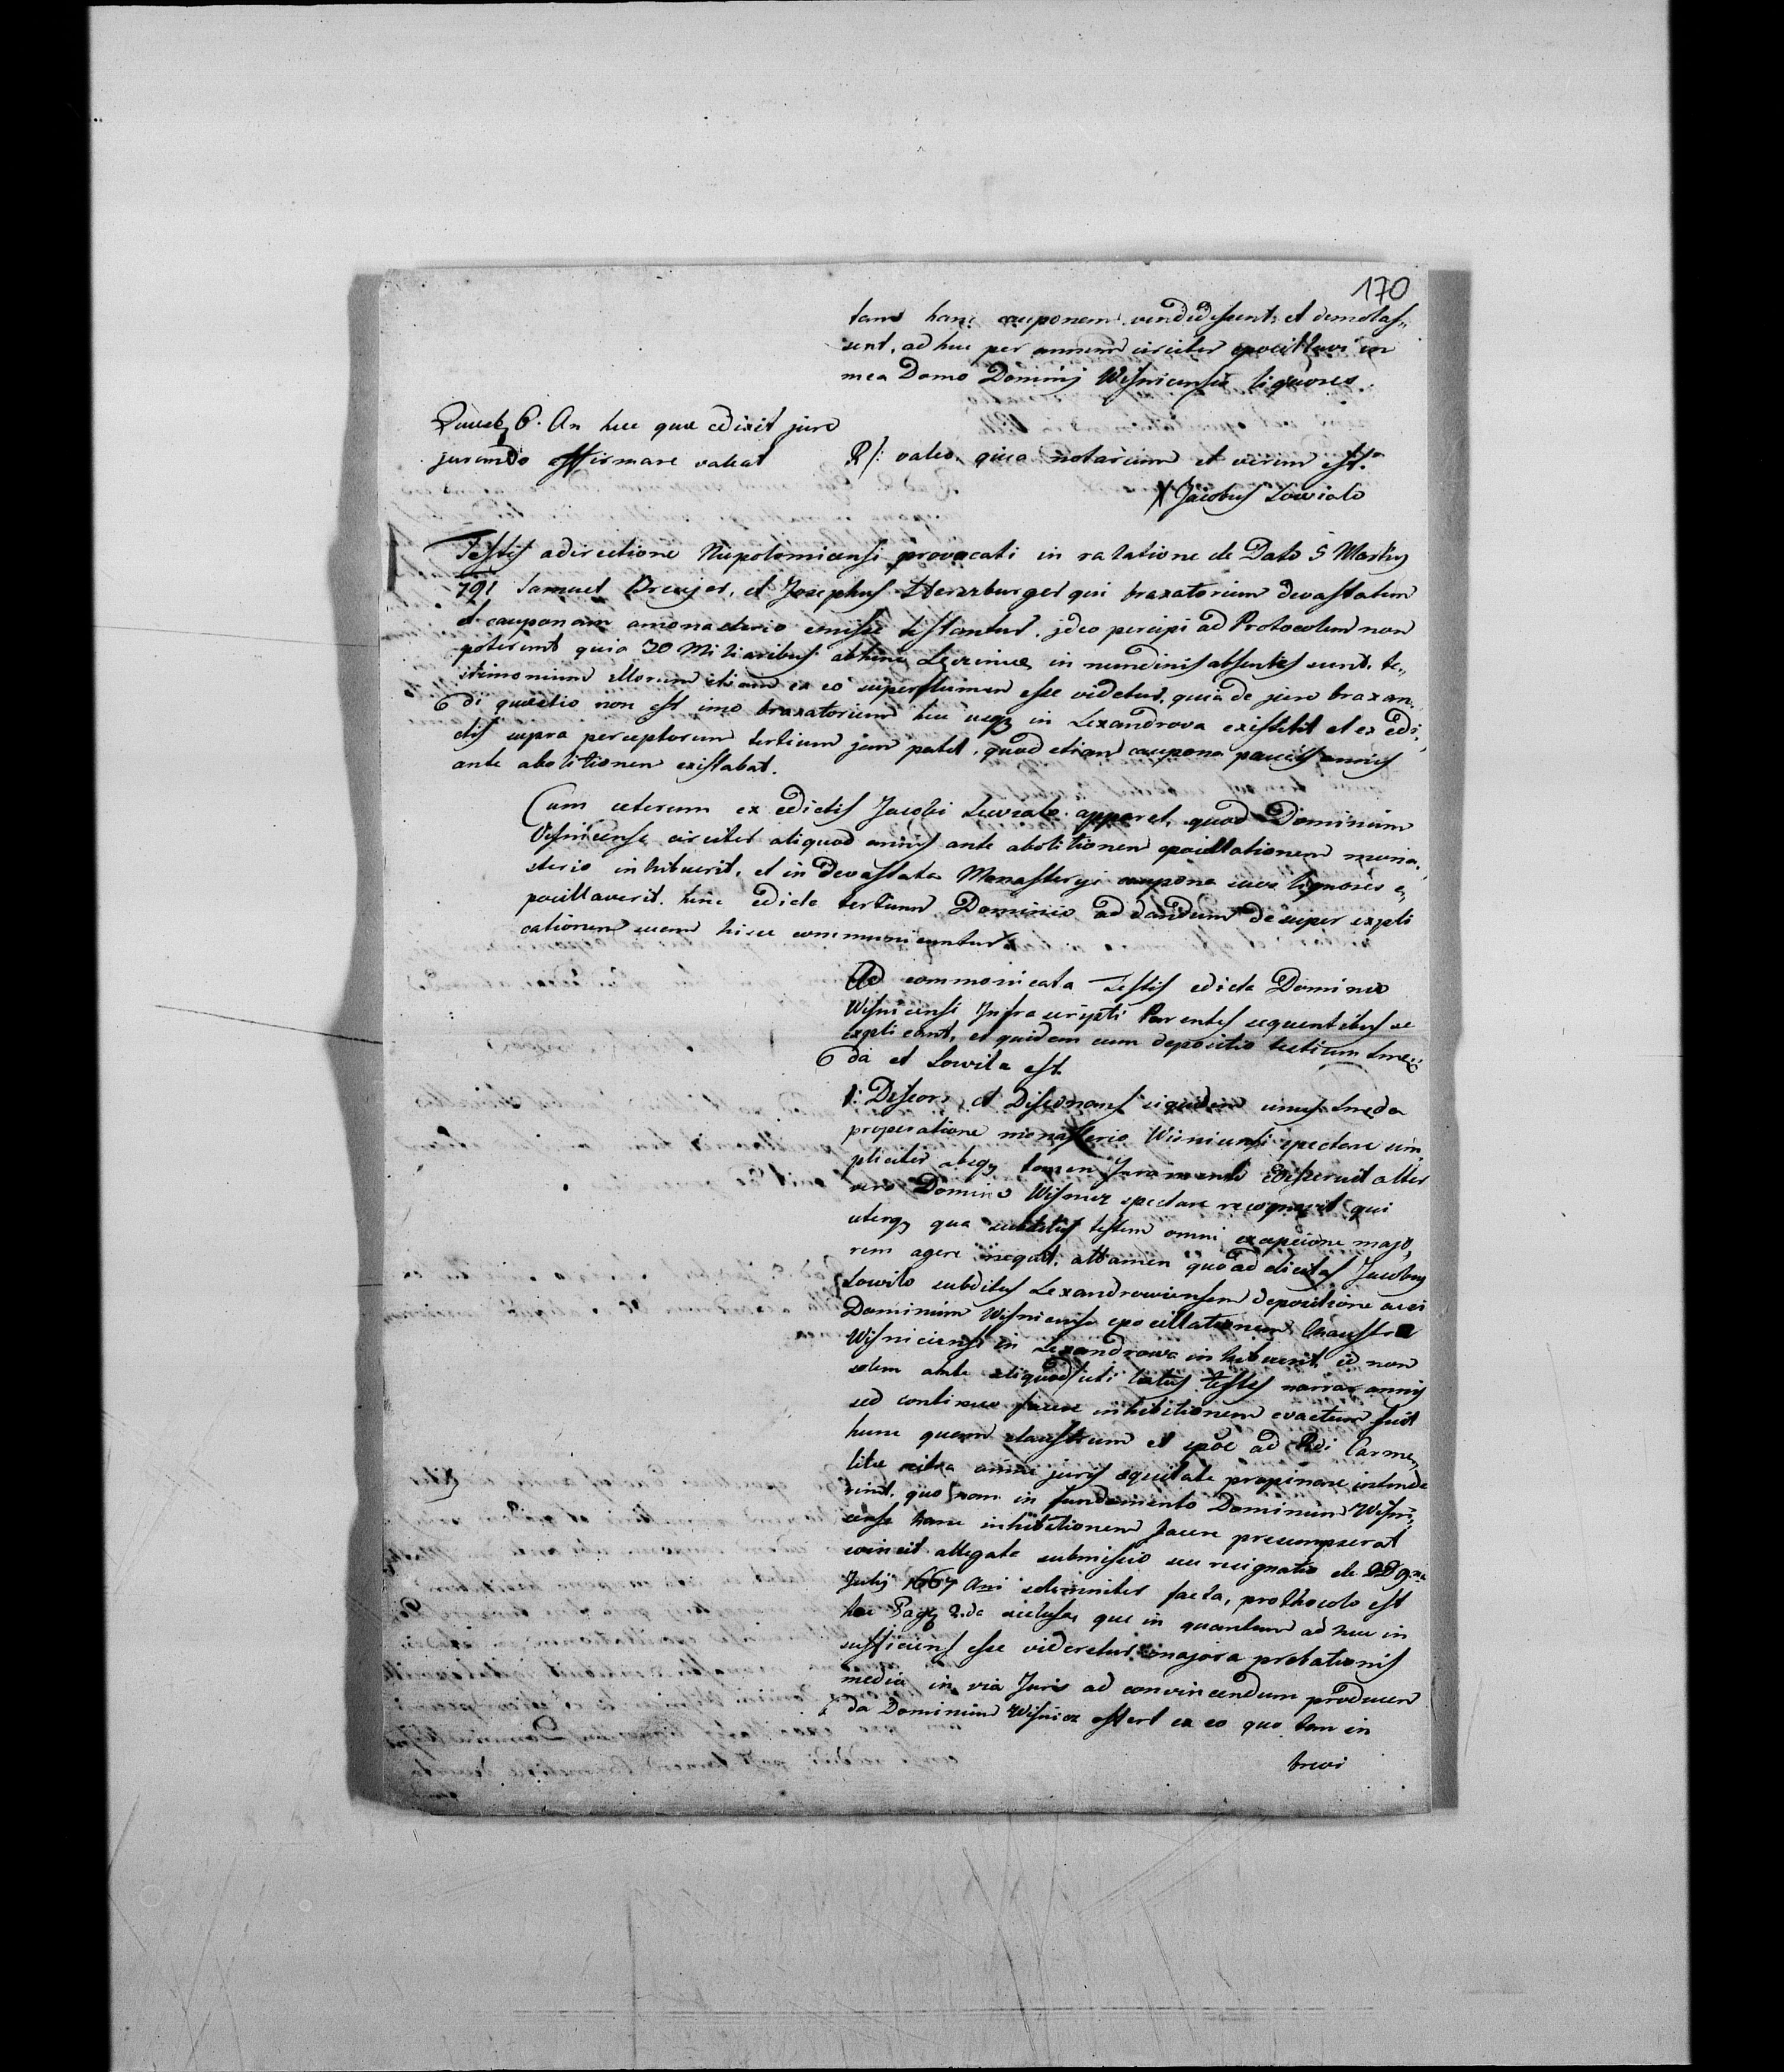 170
tand hanc cauponem vendidissent, et demolas„
sent, ad huc per annum circiter epocillavi in
mea Domo Dominij Wisnicensis liquores.
Quaest 6. An hec quae edixit jure
jurando affirmare valeat
R/: valeo, quia notarium et verum est.
X Jacobus Lowialo
Testes a directione Niepolomicensi provocati in relatione de Dato 5 Martij
791 Samuel Brenjer, et Josephus Herxburger qui braxatorium devastatum
et cauponam a monasterio emisse testantur, jdeo percipi ad Protocolum non
poterunt quia 30 Miliaribus abhinc in nundinis absentes sunt, te„
stimonium illorum etiam ex eo superfluum esse videtur, quia de jure braxan„
di quaestio non est imo braxatorium huc usq in Lexandrova existebit et ex edi„
ctis supra perceptorum testium jam patet, quod etiam caupona paucis annis
ante abolitionem existabat.
Cum ceterum ex edictis Jacobi apparet, quod Dominium
Visnicense circiter aliquod annis ante abolitionem epocillationem mona„
sterio inhibuerit, et in devastata Monasterij caupona suos liquores e„
pocillaverit. hinc edicta testium Dominio ad dandum desuper expli
cationem suam hisce communicantur.
Ad commonicata Testis edicta Dominio
Wisnicensi Infrascripti Parentes sequentibus se
explicant, et quidem cum depositio testium Smee
da et Lowila est
1: Discors et Dissonans siquidem unus Smeda
properatione monasterio Wisnicensi spectare sim„
pliciter absq tamen Juramento alter
vero Dominio Wisnicz spectare recognovit qui
uterq qua subditus testem omni excepcione majo„
rem agere neqat, attamen quo ad dicta Jacoby
Lowilo subditus Lexandroviensem depositione acsi
Dominium Wisnicense epocillationem Claustro
Wisniciensi in Lexandrowa inhibuerit id non
solum ante aliquod uti latus testes narrar annis
sed continuo facere inhibitionem exactum fuit
hunc quem claustrum et ad Rdi Carme„
litae citra omne juris equitate propinare intende
rint, quo nam in fundamento Dominium Wisni„
cense hanc inhibitionem facere presumpserat
convincit allegata submissio seu resignatio de 28
Julij 1667 Ani solemniter facta, prothocolo est
hoc Pagq 2.da acclusa, que in quantum ad huc in
sufficiens esse videretur majora probationis
media in via Juris ad convincendum producen
da Dominium Wisnicz offert ex eo quo tam in
brevi